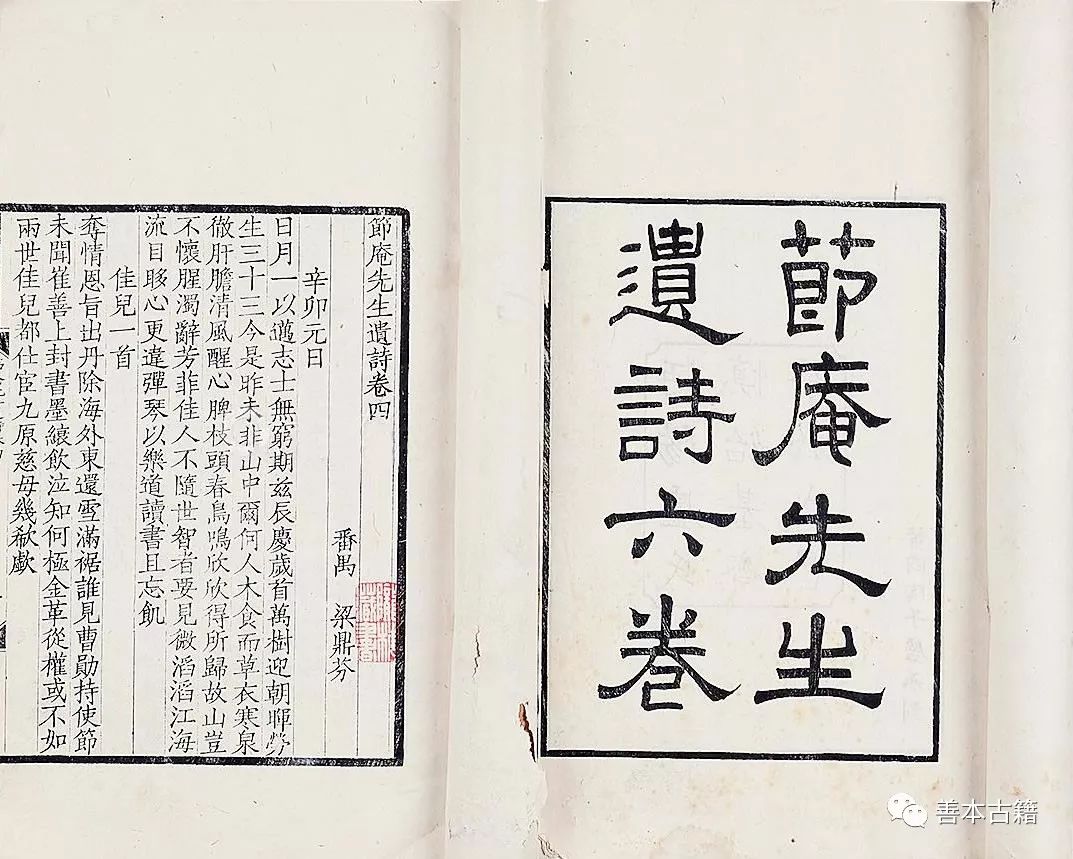 節庵先生
遺詩六卷
節庵先生遺詩卷四
番禺 梁鼎芬
辛卯元日
日月一以邁志士無窮期茲辰慶歲首萬樹迎朝暉勞
生三十三今是昨未非山中爾何人木食而草衣寒泉
徹肝膽清風醒心脾枝頭春鳥鳴欣欣得所歸故山豈
不懷腥濁辭芳菲佳人不隨世智者要見微滔滔江海
流目眵心更違彈琴以樂道讀書且忘飢
佳兒一首
奪情恩旨出丹除海外東還雪滿裾誰見曹勛持使節
未聞崔善上封書墨縗飲泣知何極金革從權或不如
兩世佳兒都仕宦九原慈母幾欷歔
藏書
善本古籍